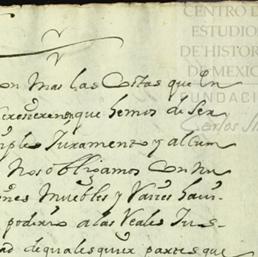 CENTRO DE
ESTUDIO
DE HISTOR
DE MEXICO
FUNDACIÓ
Carlos Sl
on mas las Costas que en
que hemos de ser
simple Juramento y al cum
Nos obligamos Con nu
nes Muebles y Raices havi
poderio a las Reales Jus
ad de qualesquier partes que